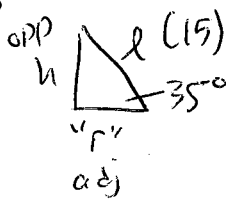 opp
h
l (15)
35°
"r"
adj